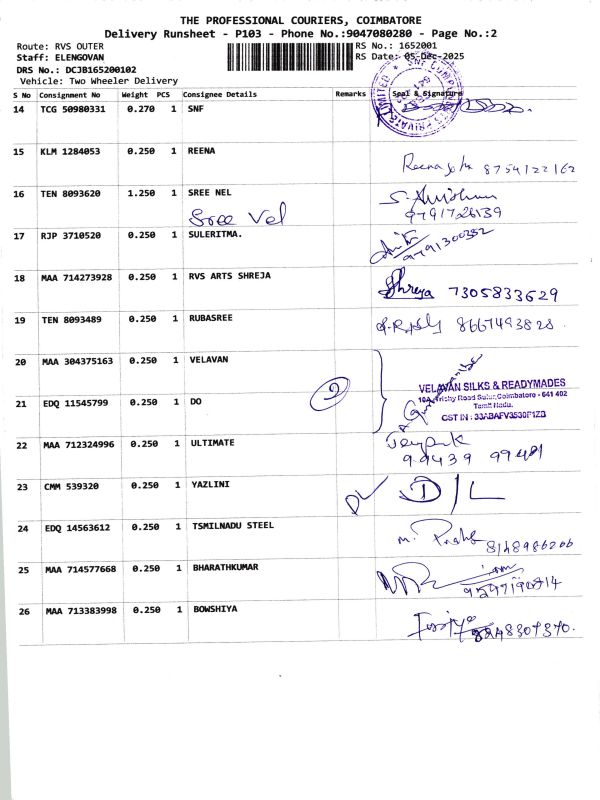 THE PROFESSIONAL COURIERS, COIMBATORE
Delivery Runsheet - P103 - Phone No.:9047080280 - Page No.:2
Route: RVS OUTER RS No.: 1652001
Staff: ELENGOVAN RS Date: 05-Dec-2025
DRS No.: DCJB165200102
Vehicle: Two Wheeler Delivery
S No Consignment No Weight PCS Consignee Details Remarks Seal & Signature
14 TCG 50980331 0.270 1 SNF
15 KLM 1284053 0.250 1 REENA
Reena 8754122162
16 TEN 8093620 1.250 1 SREE NEL
Sree Vel 9791726139
17 RJP 3710520 0.250 1 SULERITMA.
9791300352
18 MAA 714273928 0.250 1 RVS ARTS SHREJA
Shreya 7305833629
19 TEN 8093489 0.250 1 RUBASREE
8667493828
20 MAA 304375163 0.250 1 VELAVAN
VELAVAN SILKS & READYMADES
21 EDQ 11545799 0.250 1 DO 2
10A, Trichy Road Sulur, Coimbatore - 641 402
Tamil Nadu.
GST IN : 33ABAFV3530F1ZB
22 MAA 712324996 0.250 1 ULTIMATE
99439 99481
23 CMM 539320 0.250 1 YAZLINI
D/L
24 EDQ 14563612 0.250 1 TSMILNADU STEEL
8148986206
25 MAA 714577668 0.250 1 BHARATHKUMAR
26 MAA 713383998 0.250 1 BOWSHIYA
8248307370.